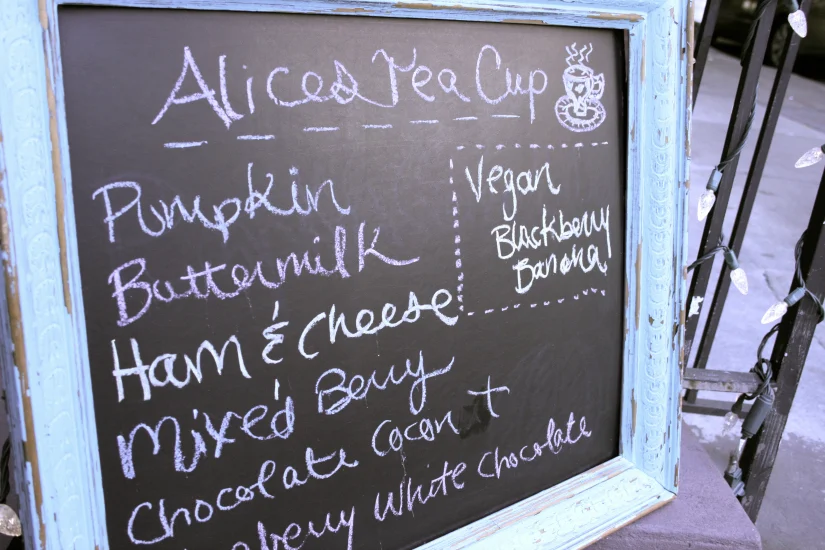 Alices Tea Cup
Pumpkin
Buttermilk
Ham & Cheese
Mixed Berry
Chocolate Coconut
White Chocolate
Vegan
Blackberry
Banana